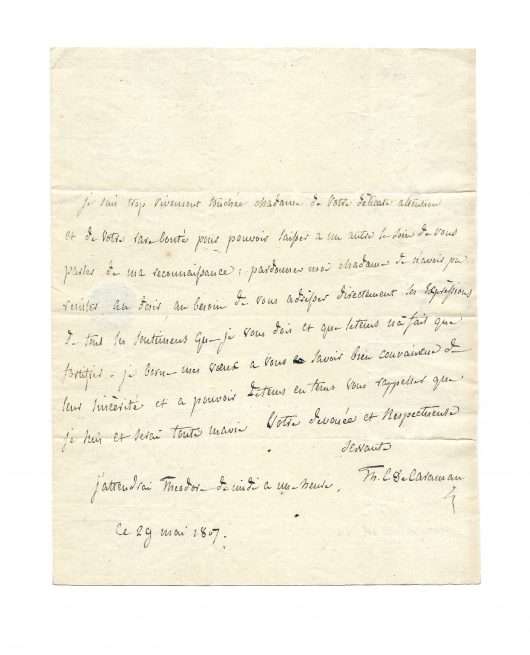 je suis trop vivement touchée Madame de votre délicate attention
et de votre rare bonté pour pouvoir laisser a un autre le soin de vous
parler de ma reconnaissance ; pardonnez moi Madame de n'avoir pu
resister au desir au besoin de vous adresser directement les expressions
de tous les sentimens que je vous dois et que le tems n'a fait que
fortifier. je borne mes vœux a vous savoir bien convaincue de
leur sincérité et a pouvoir de tems en tems vous rappeller que
je suis et serai toute ma vie Votre devouée et Respectueuse
servante
j'attendrai Theodore de midi a une heure. Th. C de Caraman
Ce 29 mai 1807.